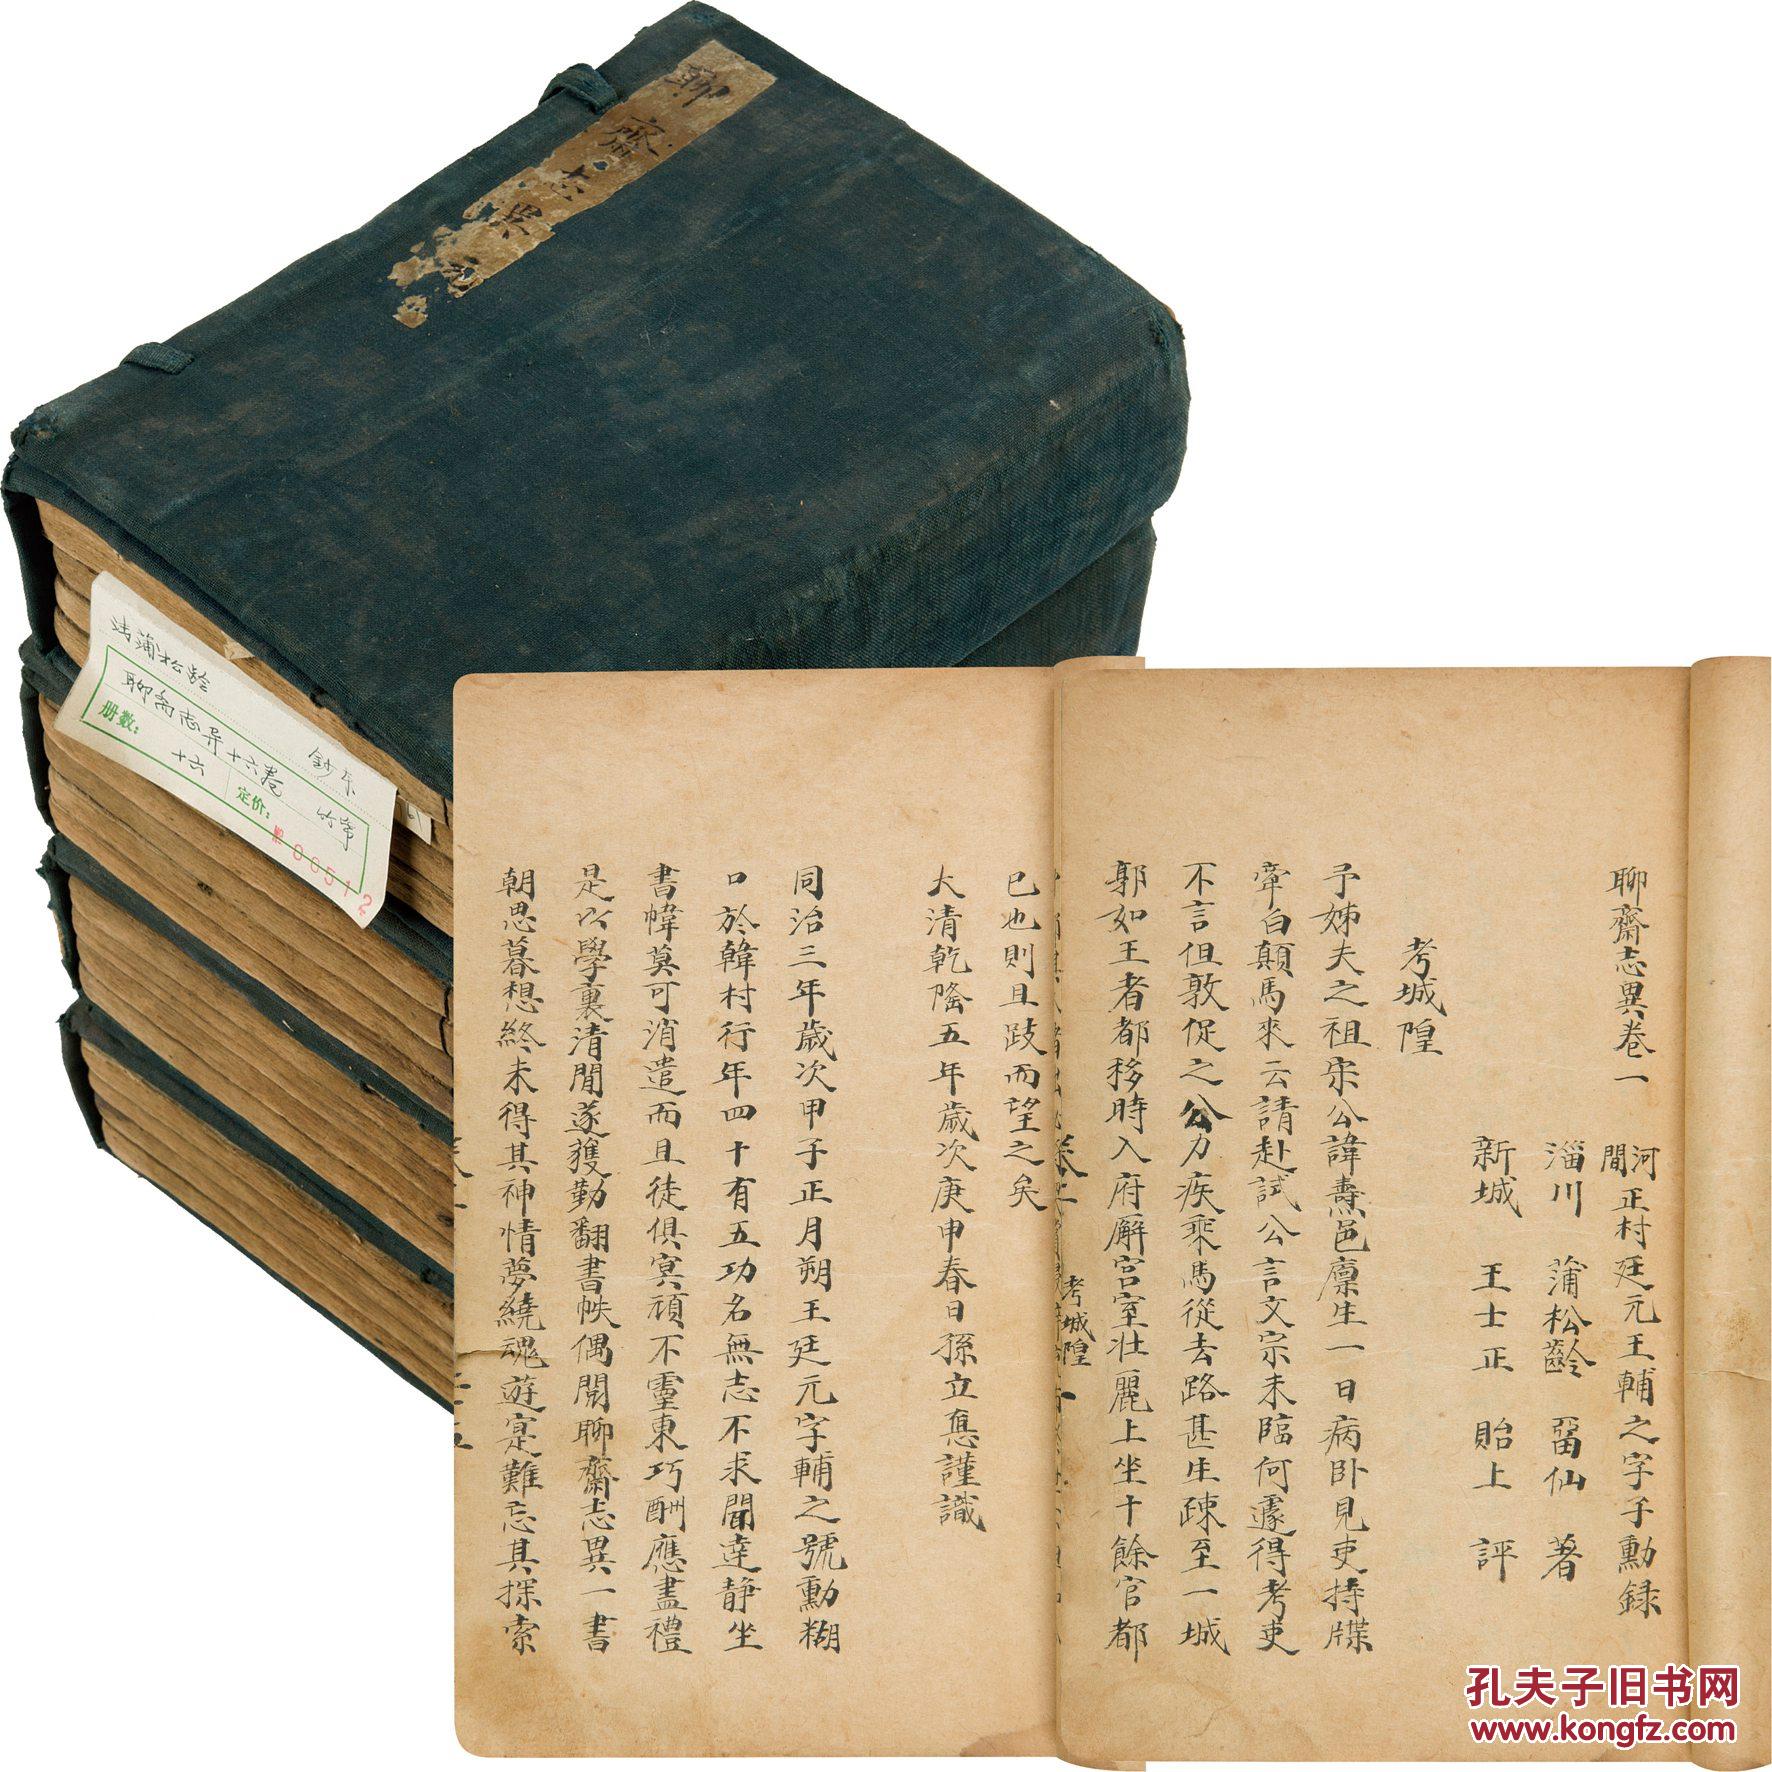 聊齋志異
清蒲松龄
聊斋志异十六卷
鈔本
竹紙
册数：
十六
定价：
№ 00512
聊齋志異卷一
河間正村廷元王輔之字子勳録
淄川 蒲松齡 畱仙 著
新城 王士正 貽上 評
考城隍
予姊夫之祖宋公諱燾邑廪生一日病卧見吏持牒
牽白顛馬來云請赴試公言文宗未臨何遽得考吏
不言但敦促之公力疾乘馬從去路甚生疎至一城
郭如王者都移時入府廨宫室壯麗上坐十餘官都
考城隍 一
已也則且跂而望之矣
大清乾隆五年歲次庚申春日孫立悳謹識
同治三年歲次甲子正月朔王廷元字輔之號勳糊
口於韓村行年四十有五功名無志不求聞達静坐
書幃莫可消遣而且徒俱冥頑不靈東巧酬應盡禮
是以學裏清閒遂獲勤翻書帙偶閲聊齋志異一書
朝思暮想終未得其神情夢繞魂遊寔難忘其探索
孔夫子旧书网
www.kongfz.com